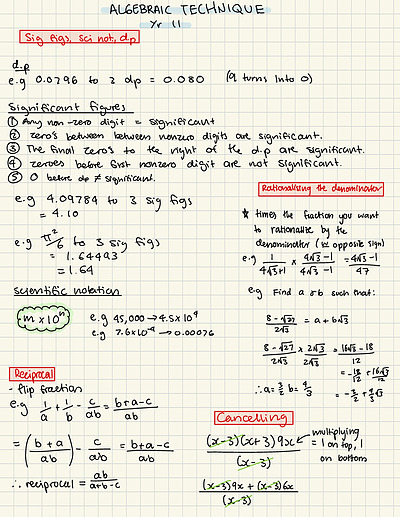 ALGEBRAIC TECHNIQUE
Yr 11
Sig figs, Sci not, d.p
d.p
e.g 0.0796 to 3 dp = 0.080 (9 turns into 0)
Significant figures
① Any non-zero digit = significant
② zero's between between nonzero digits are significant.
③ The final zero's to the right of the d.p are significant.
④ zeroes before first nonzero digit are not significant.
⑤ 0 before dp ≠ significant.
e.g 4.09784 to 3 sig figs
= 4.10
e.g π²/6 to 3 sig figs
= 1.64493
= 1.64
Scientific notation
m × 10ⁿ
e.g 45,000 → 4.5×10⁴
e.g 7.6×10⁻⁴ → 0.00076
Rationalising the denominator
★ times the fraction you want
to rationalise by the
denominator (w opposite sign)
e.g 1/(4√3+1) × (4√3-1)/(4√3-1) = (4√3-1)/47
e.g Find a & b such that:
(8-√27)/(2√3) = a+b√3
(8-√27)/(2√3) × (2√3)/(2√3) = (16√3-18)/12
= -18/12 + 16√3/12
∴ a = 3/2 b = 4/3 = -3/2 + 4/3 √3
Reciprocal
- flip fraction
e.g 1/a + 1/b - c/ab = (b+a-c)/ab
= ((b+a)/ab) - c/ab = (b+a-c)/ab
∴ reciprocal = ab/(a+b-c)
Cancelling
(x-3)(x+3)9x/(x-3) multiplying
= 1 on top, 1
on bottom
((x-3)9x + (x-3)6x)/(x-3)